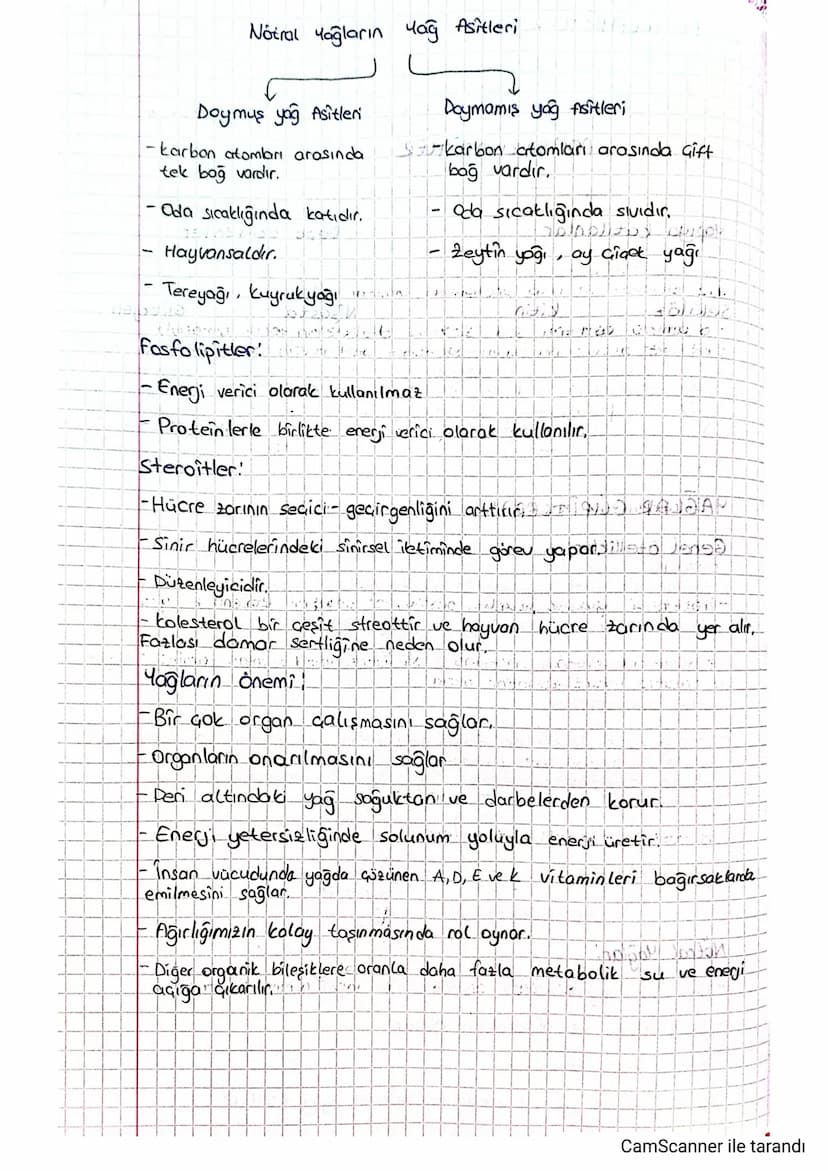 Nötral yağların yağ Asitleri
Doymuş yağ Asitleri
- karbon atomları arasında
tek bağ vardır.
- Oda sıcaklığında katıdır.
- Hayvansaldır.
- Tereyağı, kuyrukyağı
Doymamış yağ Asitleri
- karbon atomları arasında çift
bağ vardır.
- Oda sıcaklığında sıvıdır.
- Zeytin yağı, ay çiçek yağı
Fosfolipitler:
- Enerji verici olarak kullanılmaz
- Proteinlerle birlikte enerji verici olarak kullanılır.
Steroitler:
- Hücre zarının seçici-geçirgenliğini arttırır.
- Sinir hücrelerindeki sinirsel iletiminde görev yapar.
- Düzenleyicidir.
- kolesterol bir çeşit streottir ve hayvan hücre zarında yer alır.
Fazlası damar sertliğine neden olur.
Yağların önemi:
- Bir çok organ çalışmasını sağlar.
- Organların onarılmasını sağlar
- Deri altındaki yağ soğuktan ve darbelerden korur.
- Enerji yetersizliğinde solunum yoluyla enerji üretir.
- İnsan vücudunda yağda çözünen A, D, E ve k vitaminleri bağırsaklarda
emilmesini sağlar.
- Ağırlığımızın kolay taşınmasında rol oynar.
- Diğer organik bileşiklere oranla daha fazla metabolik su ve enerji
açığa çıkarılır.
CamScanner ile tarandı